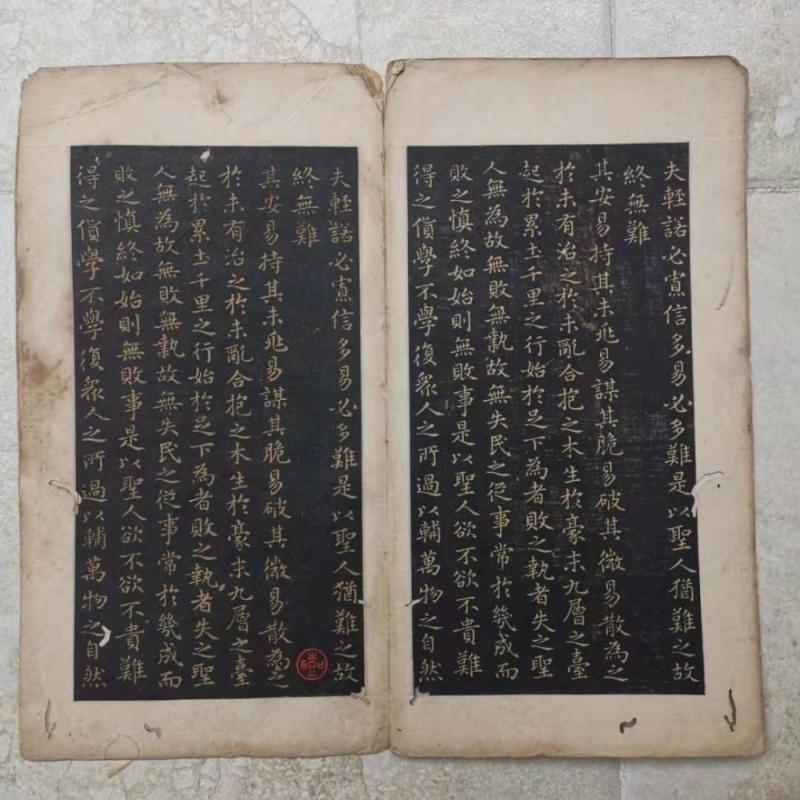 夫輕諾必寡信多易必多難是以聖人猶難之故
終無難
其安易持其未兆易謀其脆易破其微易散為之
於未有治之於未亂合抱之木生於豪末九層之臺
起於累土千里之行始於足下為者敗之執者失之聖
人無為故無敗無執故無失民之從事常於幾成而
敗之慎終如始則無敗事是以聖人欲不欲不貴難
得之貨學不學復衆人之所過以輔萬物之自然
夫輕諾必寡信多易必多難是以聖人猶難之故
終無難
其安易持其未兆易謀其脆易破其微易散為之
於未有治之於未亂合抱之木生於豪末九層之臺
起於累土千里之行始於足下為者敗之執者失之聖
人無為故無敗無執故無失民之從事常於幾成而
敗之慎終如始則無敗事是以聖人欲不欲不貴難
得之貨學不學復衆人之所過以輔萬物之自然